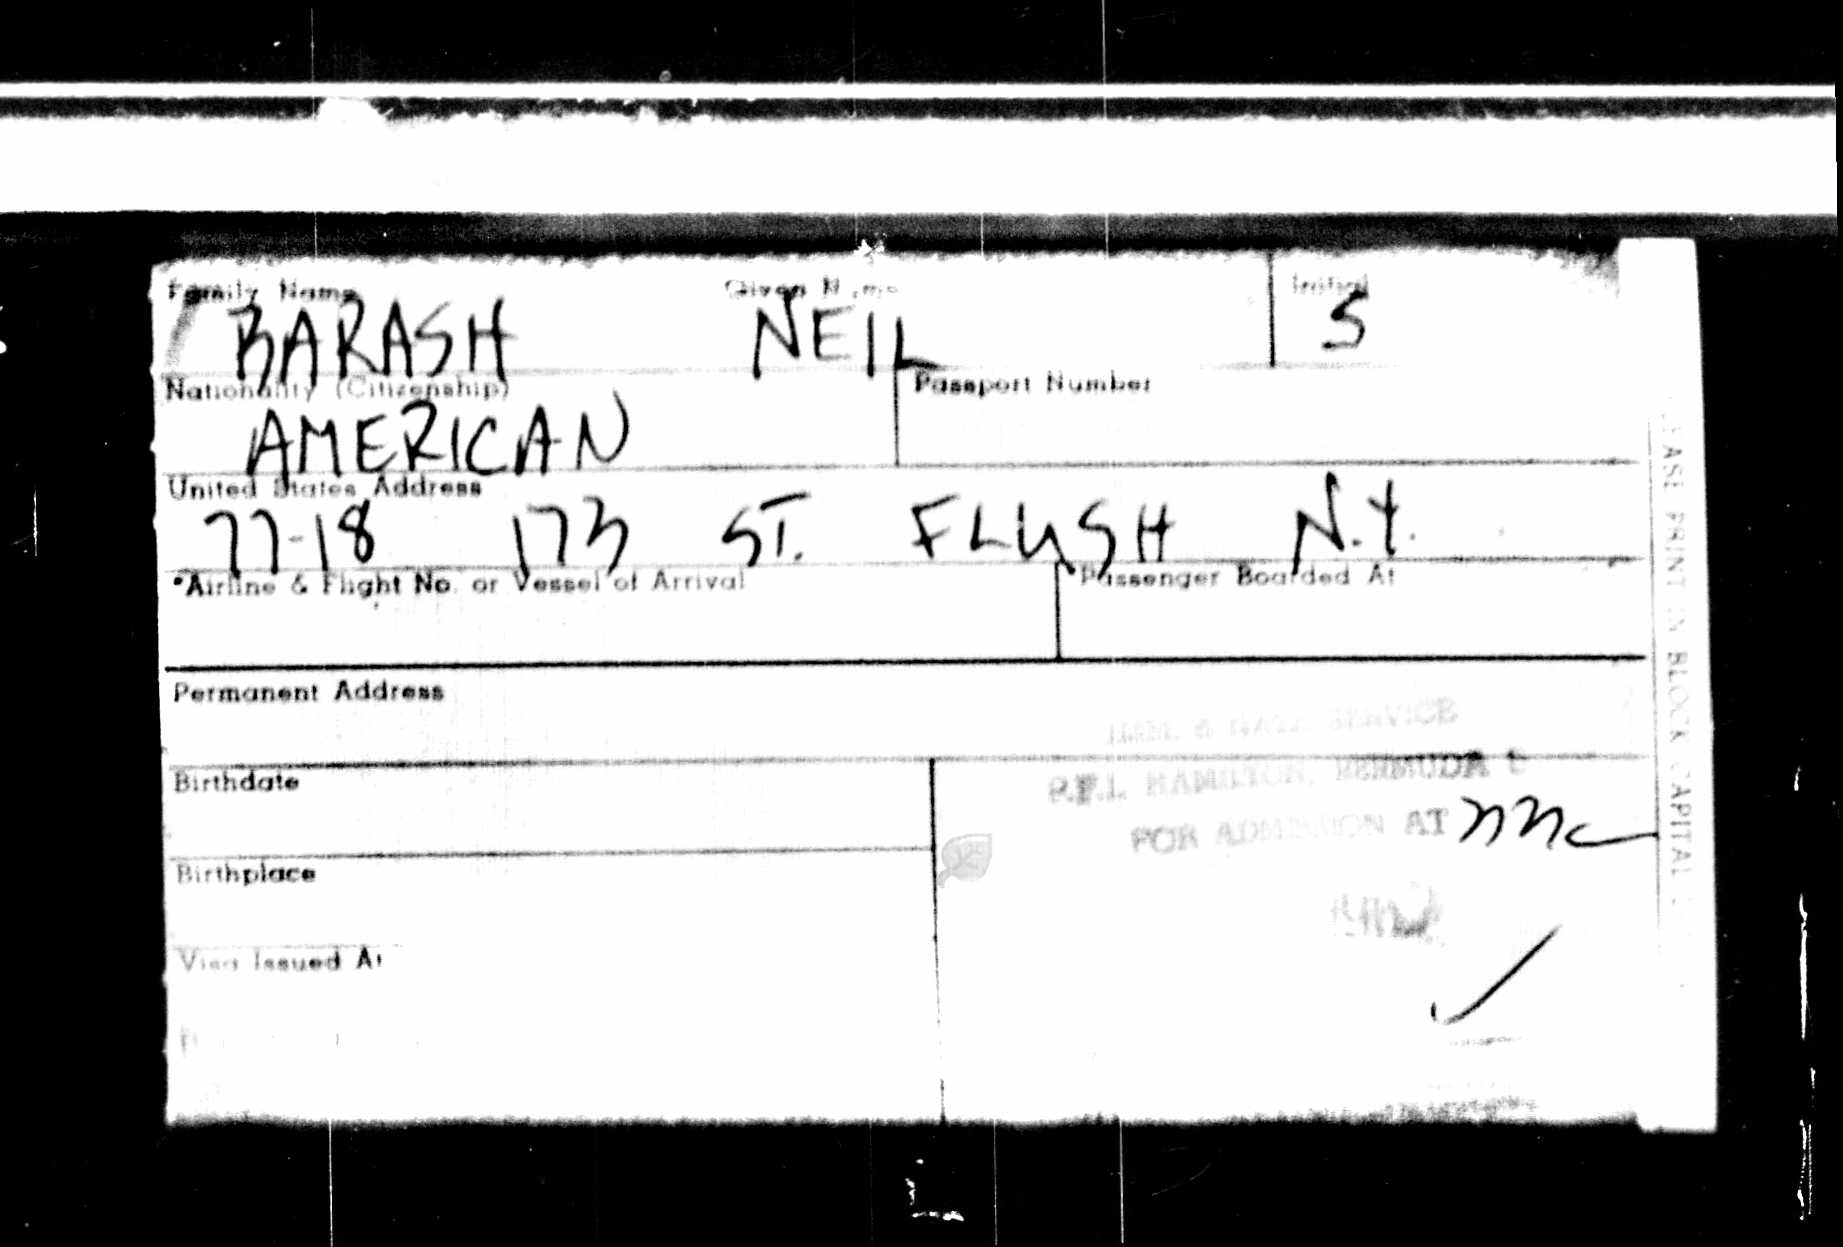 Family Name Given Name Initial
BARASH NEIL S
Nationality (Citizenship) Passport Number
AMERICAN
United States Address
77-18 173 ST. FLUSH N.Y.
*Airline & Flight No. or Vessel of Arrival Passenger Boarded At
Permanent Address
IMM. & NATZ. SERVICE
Birthdate
P.F.I. HAMILTON, BERMUDA
FOR ADMISSION AT
Birthplace
Visa Issued At
EASE PRINT IN BLOCK CAPITAL